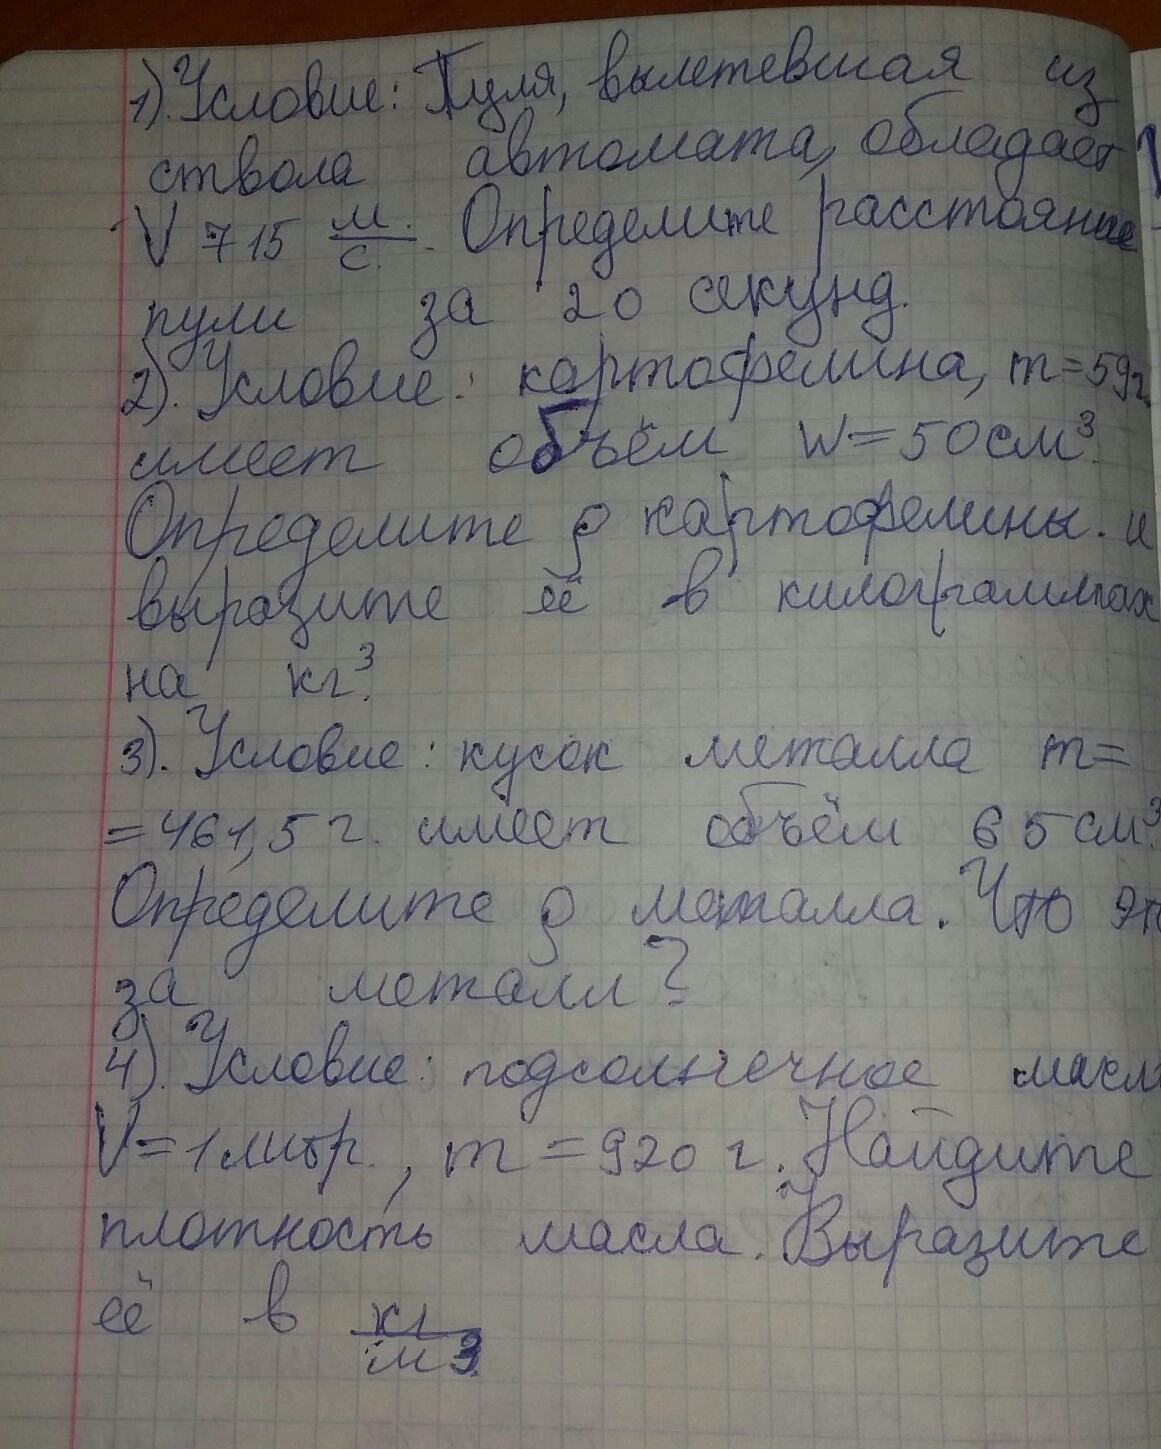 1). Условие: Пуля, вылетевшая из
ствола автомата, обладает
V 715 м./с. Определите расстояние
пули за 20 секунд.
2). Условие: картофелина, m=59г.
имеет объём W=50см³.
Определите ρ картофелины. и
выразите её в килограммах
на кг³.
3). Условие: кусок металла m=
=461,5 г. имеет объём 65см³.
Определите ρ металла. Что эт
за металл?
4). Условие: подсолнечное масло
V=1литр., m=920 г. Найдите
плотность масла. Выразите
её в кг/м3.